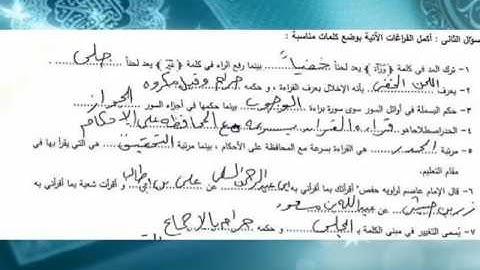 سؤال الثانى : أكمل الفراغات الآتية بوضع كلمات مناسبة :
١- ترك المد فى كلمة ﴿وَرَآءَ﴾ يعد لحناً خفياً بينما رفع الراء في كلمة ﴿غَيْرِ﴾ يعد لحناً جلى
٢- يعرف اللحن الخفى بأنه الإخلال بعرف القراءة ، و حكمه حرام وقيل مكروه
٣- حكم البسملة في أوائل السور سوى سورة براءة الوجوب بينما حكمها في أجزاء السور الجواز
٤- الحدر اصطلاحاً هو قراءة القرآن بسرعة مع المحافظة على الأحكام
٥- مرتبة الحدر هي القراءة بسرعة مع المحافظة على الأحكام ، بينما مرتبة التحقيق هي التي يقرأ بها في
مقام التعليم.
٦- قال الإمام عاصم لراويه حفص" أقرأتك بما أقرأني به ابى عبد الرحمن السلمى عن على بن ابى طالب و أقرأت شعبة بما أقرأني به
زر بن حبيش عن عبدالله بن مسعود
٧- يسمى التغيير في مبنى الكلمة بـ الجلى و حكمه حرام بالاجماع